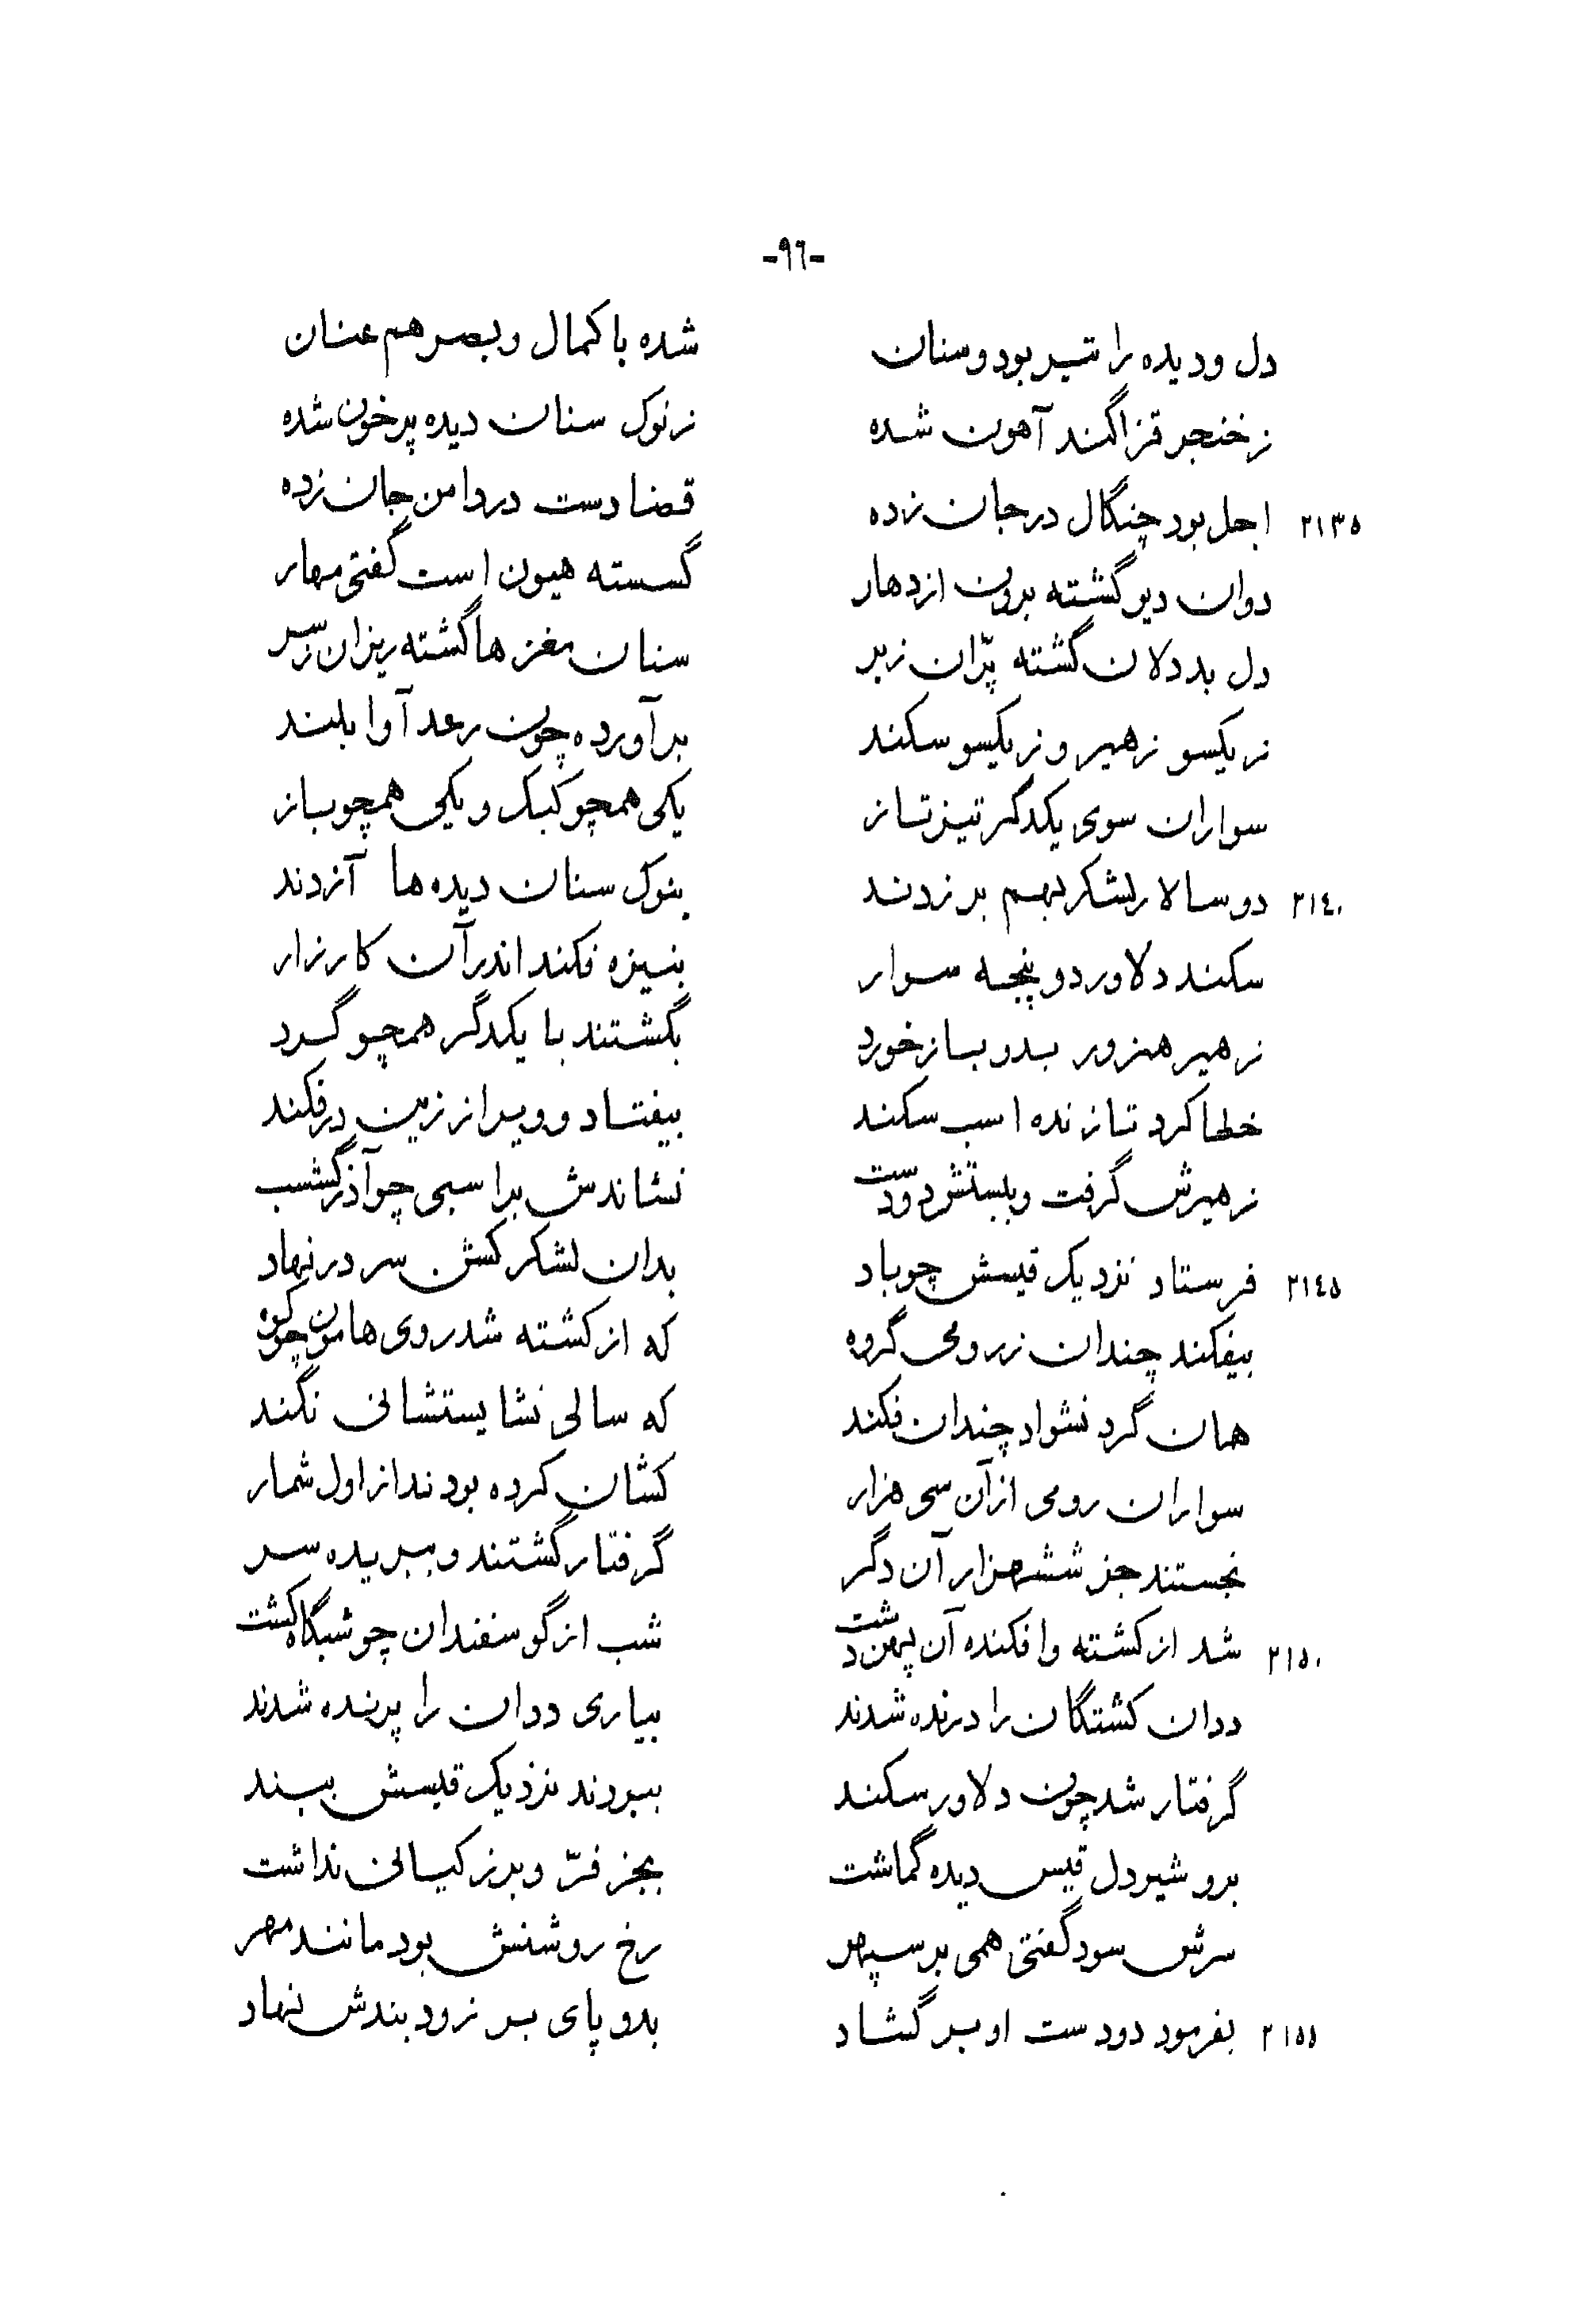 -٩٦-
دل و دیده را تیر بود و سنان شده با کمال و بصر هم عنان
ز خنجر قزاگند آهون شده ز نوک سنان دیده پرخون شده
٢١٣٥ اجل بود چنگال در جان زده قضا دست در دامن جان زده
دوان دیو گشته برون ازدهار گسسته هیون است گفتی مهار
دل بددلان گشته پرّان زبر سنان مغزها گشته ریزان ز سر
ز یکسو زهیر و ز یکسو سکند برآورده چون رعد آوا بلند
سواران سوی یکدگر تیزتاز یکی همچو کبک و یکی همچو باز
٢١٤٠ دو سالار لشکر بهم بر زدند بنوک سنان دیده‌ها آزدند
سکند دلاور دو پنجه سوار بنیزه فکند اندر آن کارزار
زهیر هنرور بدو باز خورد بگشتند با یکدگر همچو گرد
خطا کرد تازنده اسب سکند بیفتاد و ویرا ز زین درفکند
زهیرش گرفت و ببستش دو دست نشاندش بر اسبی چو آذرگشسب
٢١٤٥ فرستاد نزدیک قیسش چو باد بدان لشکر کشن سر در نهاد
بیفکند چندان ز رومی گروه که از کشته شد روی هامون چو کوه
همان گرد نشواد چندان فکند که سالی نشایستشانی نگند
سواران رومی از آن سی هزار کشان کرده بودند از اول شمار
نجستند جز ششهزار آن دگر گرفتار گشتند و ببریده سر
٢١٥٠ شد از کشته وافکنده آن پهن دشت شب از گوسفندان چو شبگاه کشت
ددان کشتگان را درنده شدند بیاری ددان را پرنده شدند
گرفتار شد چون دلاور سکند ببردند نزدیک قیسش ببند
برو شیردل قیس دیده گماشت بجز فرّ و برز کیانی نداشت
سرش سود گفتی همی بر سپهر رخ روشنش بود مانند مهر
٢١٥٥ بفرمود دو دست او برگشاد بدو پای بر زود بندش نهاد